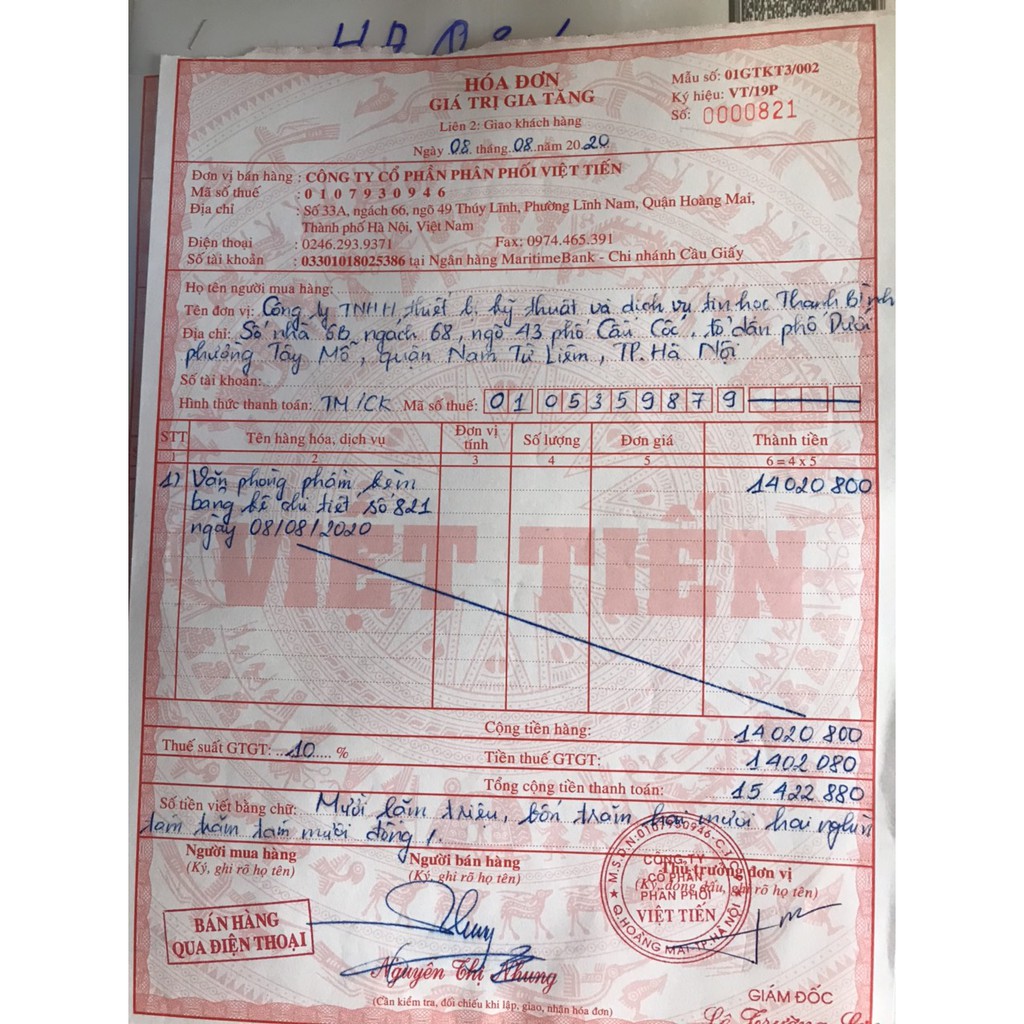 HÓA ĐƠN
GIÁ TRỊ GIA TĂNG
Liên 2: Giao khách hàng
Ngày 08 tháng 08 năm 2020
Mẫu số: 01GTKT3/002
Ký hiệu: VT/19P
Số: 0000821
Đơn vị bán hàng : CÔNG TY CỔ PHẦN PHÂN PHỐI VIỆT TIẾN
Mã số thuế : 0107930946
Địa chỉ : Số 33A, ngách 66, ngõ 49 Thúy Lĩnh, Phường Lĩnh Nam, Quận Hoàng Mai,
Thành phố Hà Nội, Việt Nam
Điện thoại : 0246.293.9371 Fax: 0974.465.391
Số tài khoản : 03301018025386 tại Ngân hàng MaritimeBank - Chi nhánh Cầu Giấy
Họ tên người mua hàng:
Tên đơn vị: Công ty TNHH thiết bị kỹ thuật và dịch vụ tin học Thanh Bình
Địa chỉ: Số nhà 6B, ngách 68, ngõ 43 phố Cầu Cốc, tổ dân phố Dưới
phường Tây Mỗ, quận Nam Từ Liêm, TP. Hà Nội
Số tài khoản:
Hình thức thanh toán: TM/CK Mã số thuế: 0105359879
STT Tên hàng hóa, dịch vụ Đơn vị tính Số lượng Đơn giá Thành tiền
1 2 3 4 5 6 = 4 x 5
1) Văn phòng phẩm kèm 14020 800
bảng kê chi tiết số 821
ngày 08/08/2020
VIỆT TIẾN
Cộng tiền hàng: 14020 800
Thuế suất GTGT: 10 % Tiền thuế GTGT: 1402 080
Tổng cộng tiền thanh toán: 15 422 880
Số tiền viết bằng chữ: Mười lăm triệu, bốn trăm hai mươi hai nghìn
tám trăm tám mười đồng ./.
Người mua hàng Người bán hàng Thủ trưởng đơn vị
(Ký, ghi rõ họ tên) (Ký, ghi rõ họ tên) (Ký, đóng dấu, ghi rõ họ tên)
M.S.D.N: 0107930946-C.T.C.P
CÔNG TY
CỔ PHẦN
PHÂN PHỐI
VIỆT TIẾN
Q.HOÀNG MAI-TP.HÀ NỘI
BÁN HÀNG
QUA ĐIỆN THOẠI
Nguyễn Thị Nhung
(Cần kiểm tra, đối chiếu khi lập, giao, nhận hóa đơn)
GIÁM ĐỐC